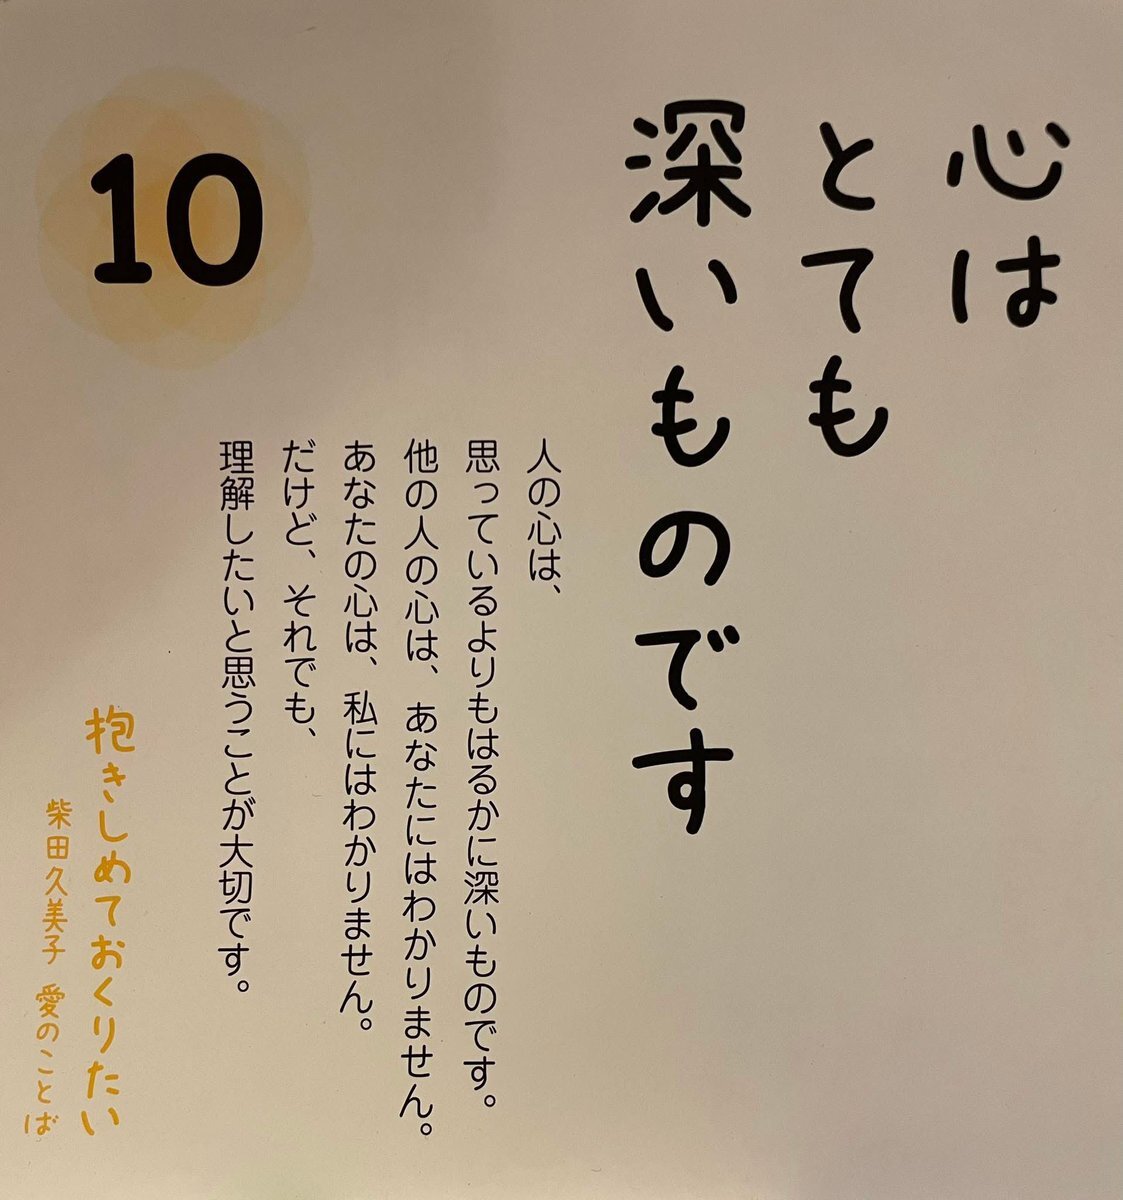 心は
とても
深いものです
人の心は、
思っているよりもはるかに深いものです。
他の人の心は、あなたにはわかりません。
あなたの心は、私にはわかりません。
だけど、それでも、
理解したいと思うことが大切です。
10
抱きしめておくりたい
柴田久美子 愛のことば